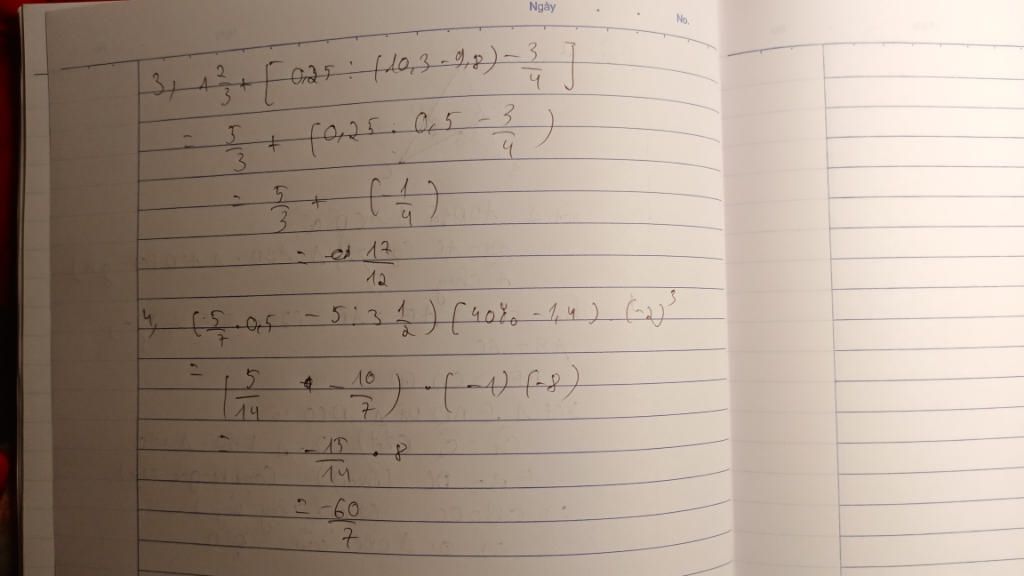 Ngày
No.
3, 1 2/3 + [ 0,25 : (10,3 - 9,8) - 3/4 ]
= 5/3 + (0,25 : 0,5 - 3/4 )
= 5/3 + (-1/4)
= 17/12
4, (5/7 . 0,5 - 5 : 3 1/2) (40% - 1,4) . (-2)³
= (5/14 - 10/7) . (-1) (-8)
= -15/14 . 8
= -60/7